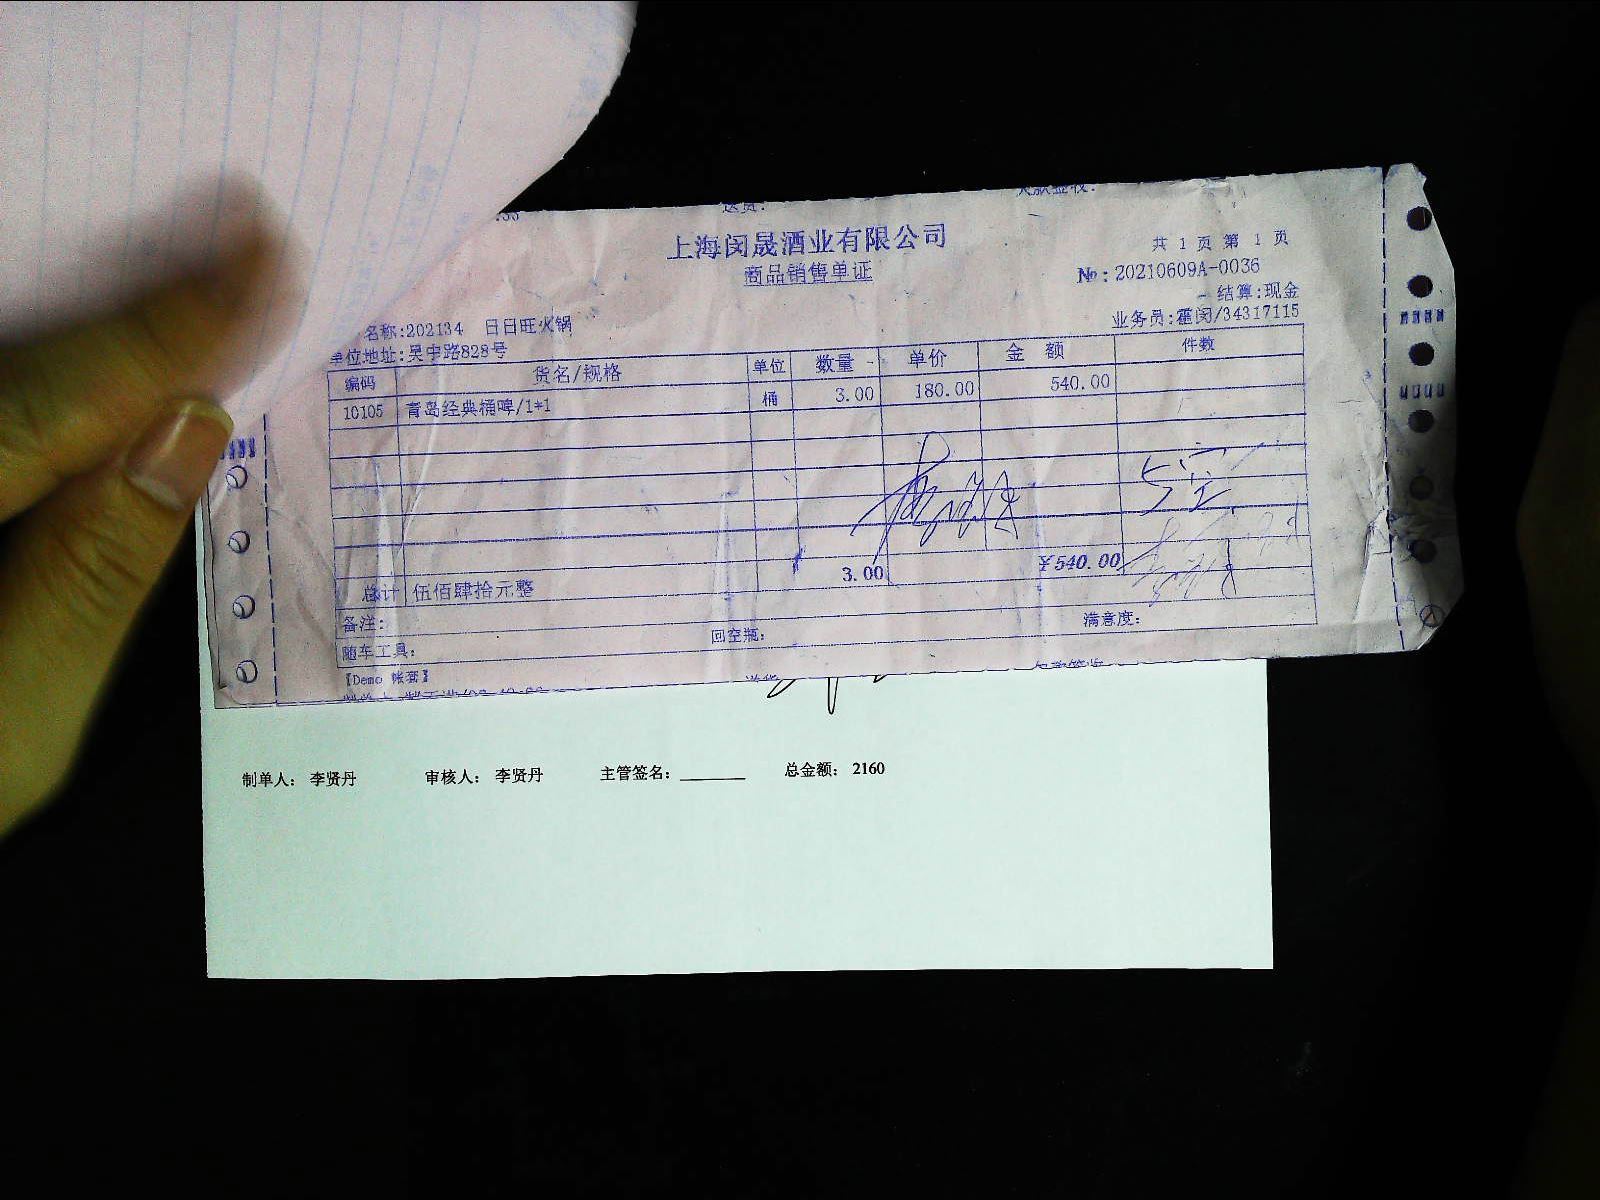 送货:
上海闵晟酒业有限公司
商品销售单证
共 1 页 第 1 页
№:20210609A-0036
结算:现金
业务员:霍闵/34317115
名称:202134 日日旺火锅
单位地址:吴中路828号
编码 货名/规格 单位 数量 单价 金 额 件数
10105 青岛经典桶啤/1*1 桶 3.00 180.00 540.00
5空
总计 伍佰肆拾元整 3.00 ¥540.00
备注:
随车工具: 回空瓶: 满意度:
【Demo 帐套】
制单人: 李贤丹 审核人: 李贤丹 主管签名: 总金额: 2160